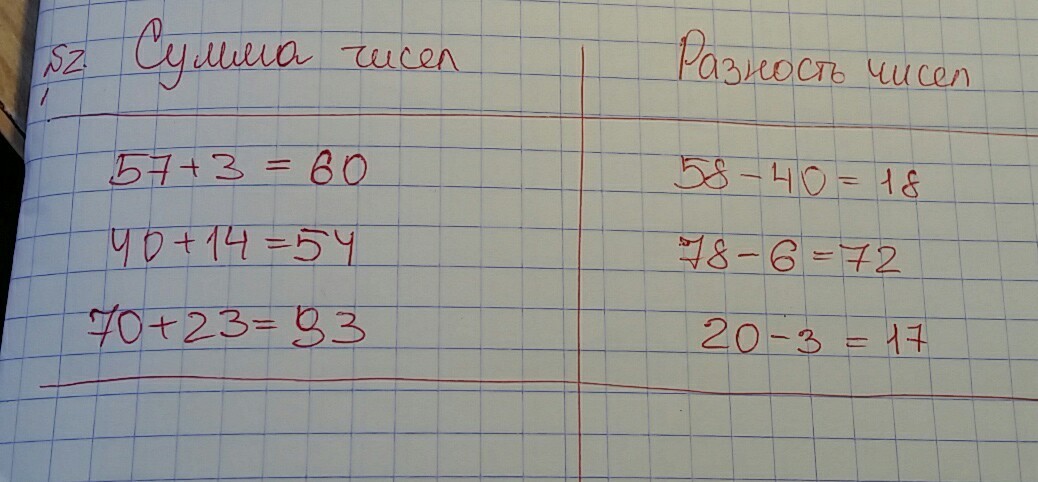 №2. Сумма чисел
Разность чисел
57+3=60
58-40=18
40+14=54
78-6=72
70+23=93
20-3=17